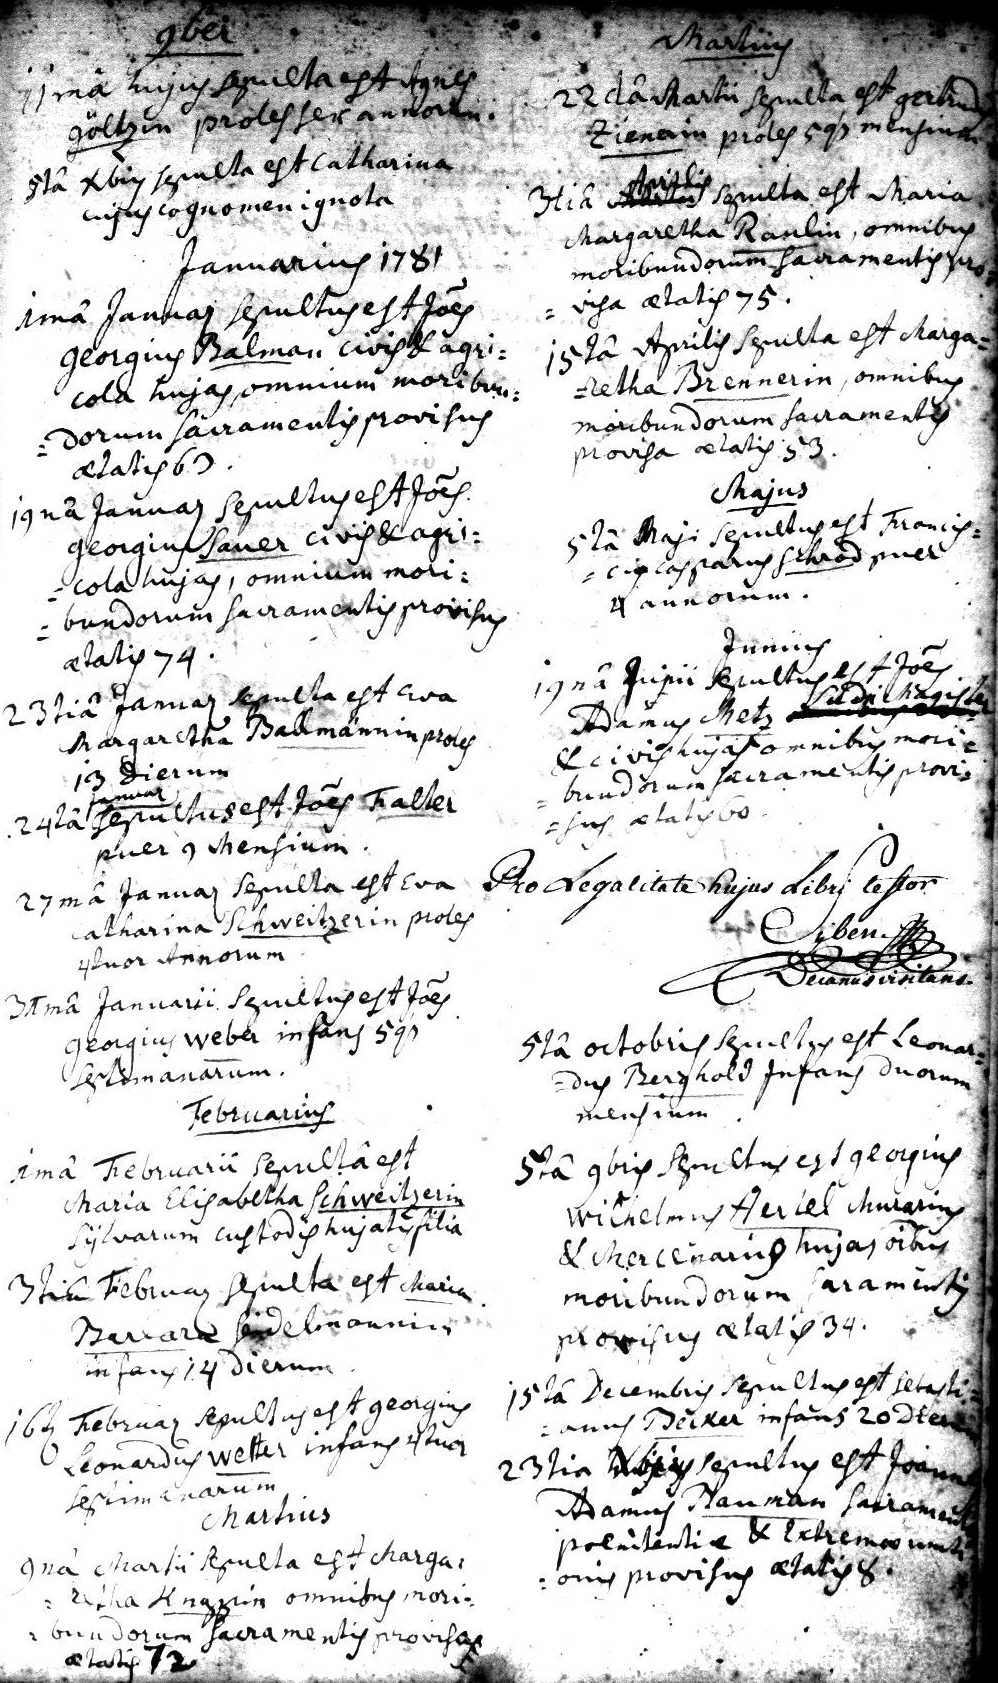 9ber
11mâ hujus sepulta est Agnes
Göltzin proles sex annorum.
5tâ Xbris sepulta est Catharina
cujus cognomen ignota
Januarius 1781
1mâ Januar sepultus est Jões
Georgius Balman civis & agri=
cola hujas, omnium moribun=
=dorum sacramentis provisus
ætatis 63.
19nâ Januar sepultus est Jões.
Georgius Sauer civis & agri=
=cola hujas, omnium mori=
=bundorum sacramentis provisus
ætatis 74.
23tiâ Januar sepulta est Eva
Margaretha Ballmännin proles
13 Dierum
Januar
24tâ sepultus est Jões Faller
puer 9 Mensium.
27mâ Januar sepulta est Eva
Catharina Schweitzerin proles
4tuor Annorum
31mâ Januarii sepultus est Jões
Georgius Weber infans 5q3
septimanarum.
Februarius
1mâ Februarii sepultâ est
Maria Elisabetha Schweitzerin
Sylvarum custodis hujatis filia
3tia Februar sepulta est Maria
Barbara Seidelmannin
infans 14 Dierum.
16ta Februar sepultus est Georgius
Leonardus Welter infans 4tuor
septimanarum
Martius
9nâ Martii sepulta est Marga=
=retha Knappin omnibus mori=
=bundorum Sacramentis provisa
ætatis 72
Martius
22dâ Martii sepulta est Gertrudis
Zienerin proles 5q3 mensium
Aprilis
3tiâ sepulta est Maria
Margaretha Raulin, omnibus
moribundorum Sacramentis pro=
=visa ætatis 75.
15tâ Aprilis sepulta est Marga=
=retha Brennerin, omnibus
moribundorum sacramentis
provisa ætatis 53.
Majus
5tâ Maji sepultus est Francis=
=cus Casparus Schrod puer
4 annorum.
Junius
19nâ Junii sepultus est Jões
Adamus Metz Ludi Magister
& civis hujas omnibus mori=
=bundorum sacramentis provi=
=sus ætatis 60.
Pro Legalitate hujus Libri testor
Siben
Decanus visitans.
5tâ octobris sepultus est Leonar=
=dus Berghold Infans duorum
mensium.
5tâ 9bris sepultus est Georgius
Wilhelmus Hertel Murarius
& Mercenarius hujas oibus
moribundorum saramentis
provisus ætatis 34.
15tâ Decembris sepultus est Sebasti=
=anus Becker infans 20 Dierum
23tia Xbris sepultus est Joannes
Adamus Bauman sacramentis
poenitentiæ & Extremæ uncti
=onis provisus ætatis 8.